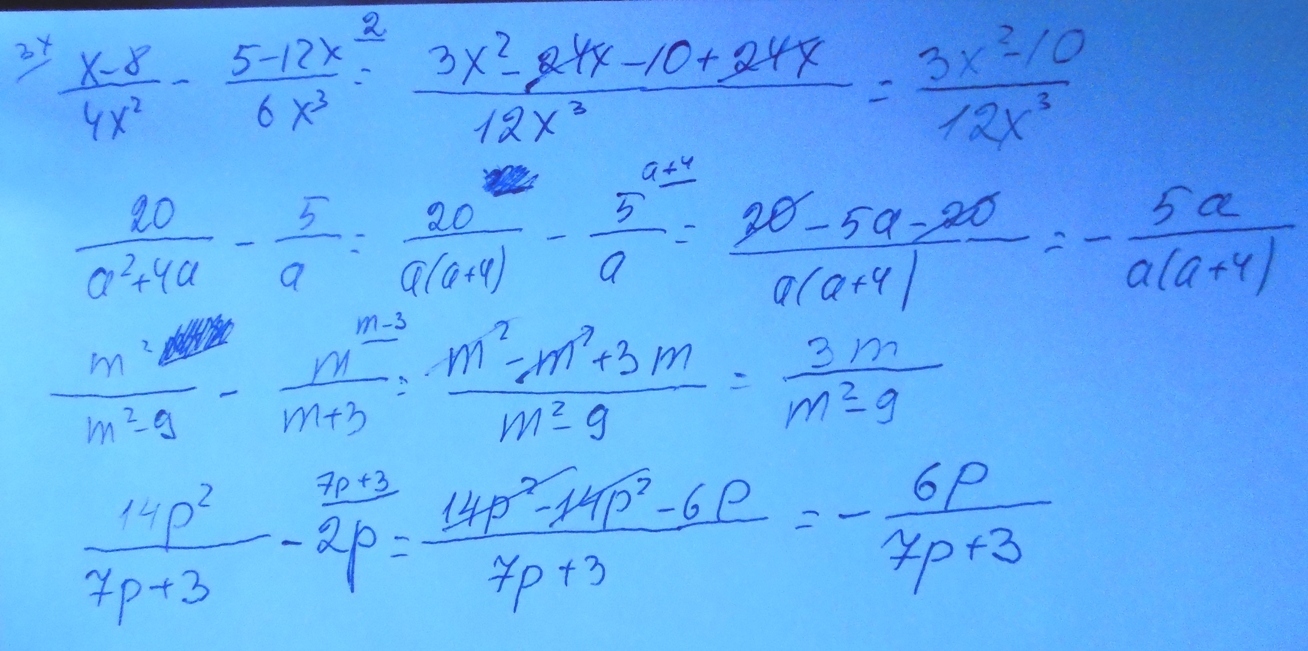 3x x-8/4x² - 5-12x/6x³ 2 = 3x²-24x-10+24x/12x³ = 3x²-10/12x³
20/a²+4a - 5/a = 20/a(a+4) - 5/a a+4 = 20-5a-20/a(a+4) = - 5a/a(a+4)
m²/m²-9 - m/m+3 m-3 = m²-m²+3m/m²-9 = 3m/m²-9
14p²/7p+3 - 2p 7p+3 = 14p²-14p²-6p/7p+3 = - 6p/7p+3